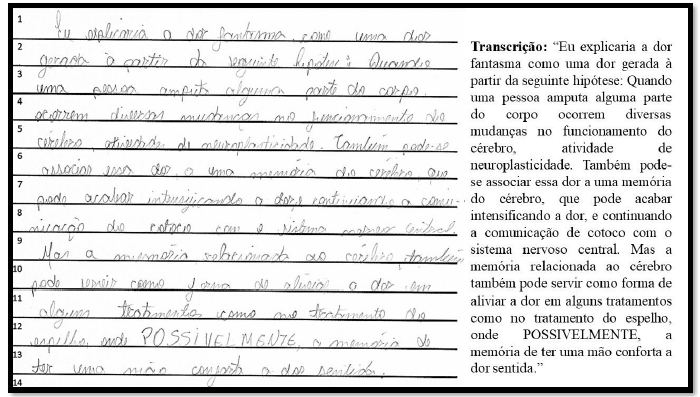 1 Eu explicaria a dor fantasma como uma dor
2 gerada à partir da seguinte hipótese: Quando
3 uma pessoa amputa alguma parte do corpo,
4 ocorrem diversas mudanças no funcionamento do
5 cérebro, atividade de neuroplasticidade. Também pode-se
6 associar essa dor a uma memória do cérebro, que
7 pode acabar intensificando a dor, e continuando a comu-
8 nicação do cotoco com o sistema nervoso central.
9 Mas a memória relacionada ao cérebro também
10 pode servir como forma de aliviar a dor em
11 alguns tratamentos como no tratamento do
12 espelho, onde POSSIVELMENTE, a memória de
13 ter uma mão conforta a dor sentida.
14
Transcrição: “Eu explicaria a dor
fantasma como uma dor gerada à
partir da seguinte hipótese: Quando
uma pessoa amputa alguma parte
do corpo ocorrem diversas
mudanças no funcionamento do
cérebro, atividade de
neuroplasticidade. Também pode-
se associar essa dor a uma memória
do cérebro, que pode acabar
intensificando a dor, e continuando
a comunicação de cotoco com o
sistema nervoso central. Mas a
memória relacionada ao cérebro
também pode servir como forma de
aliviar a dor em alguns tratamentos
como no tratamento do espelho,
onde POSSIVELMENTE, a
memória de ter uma mão conforta a
dor sentida.”